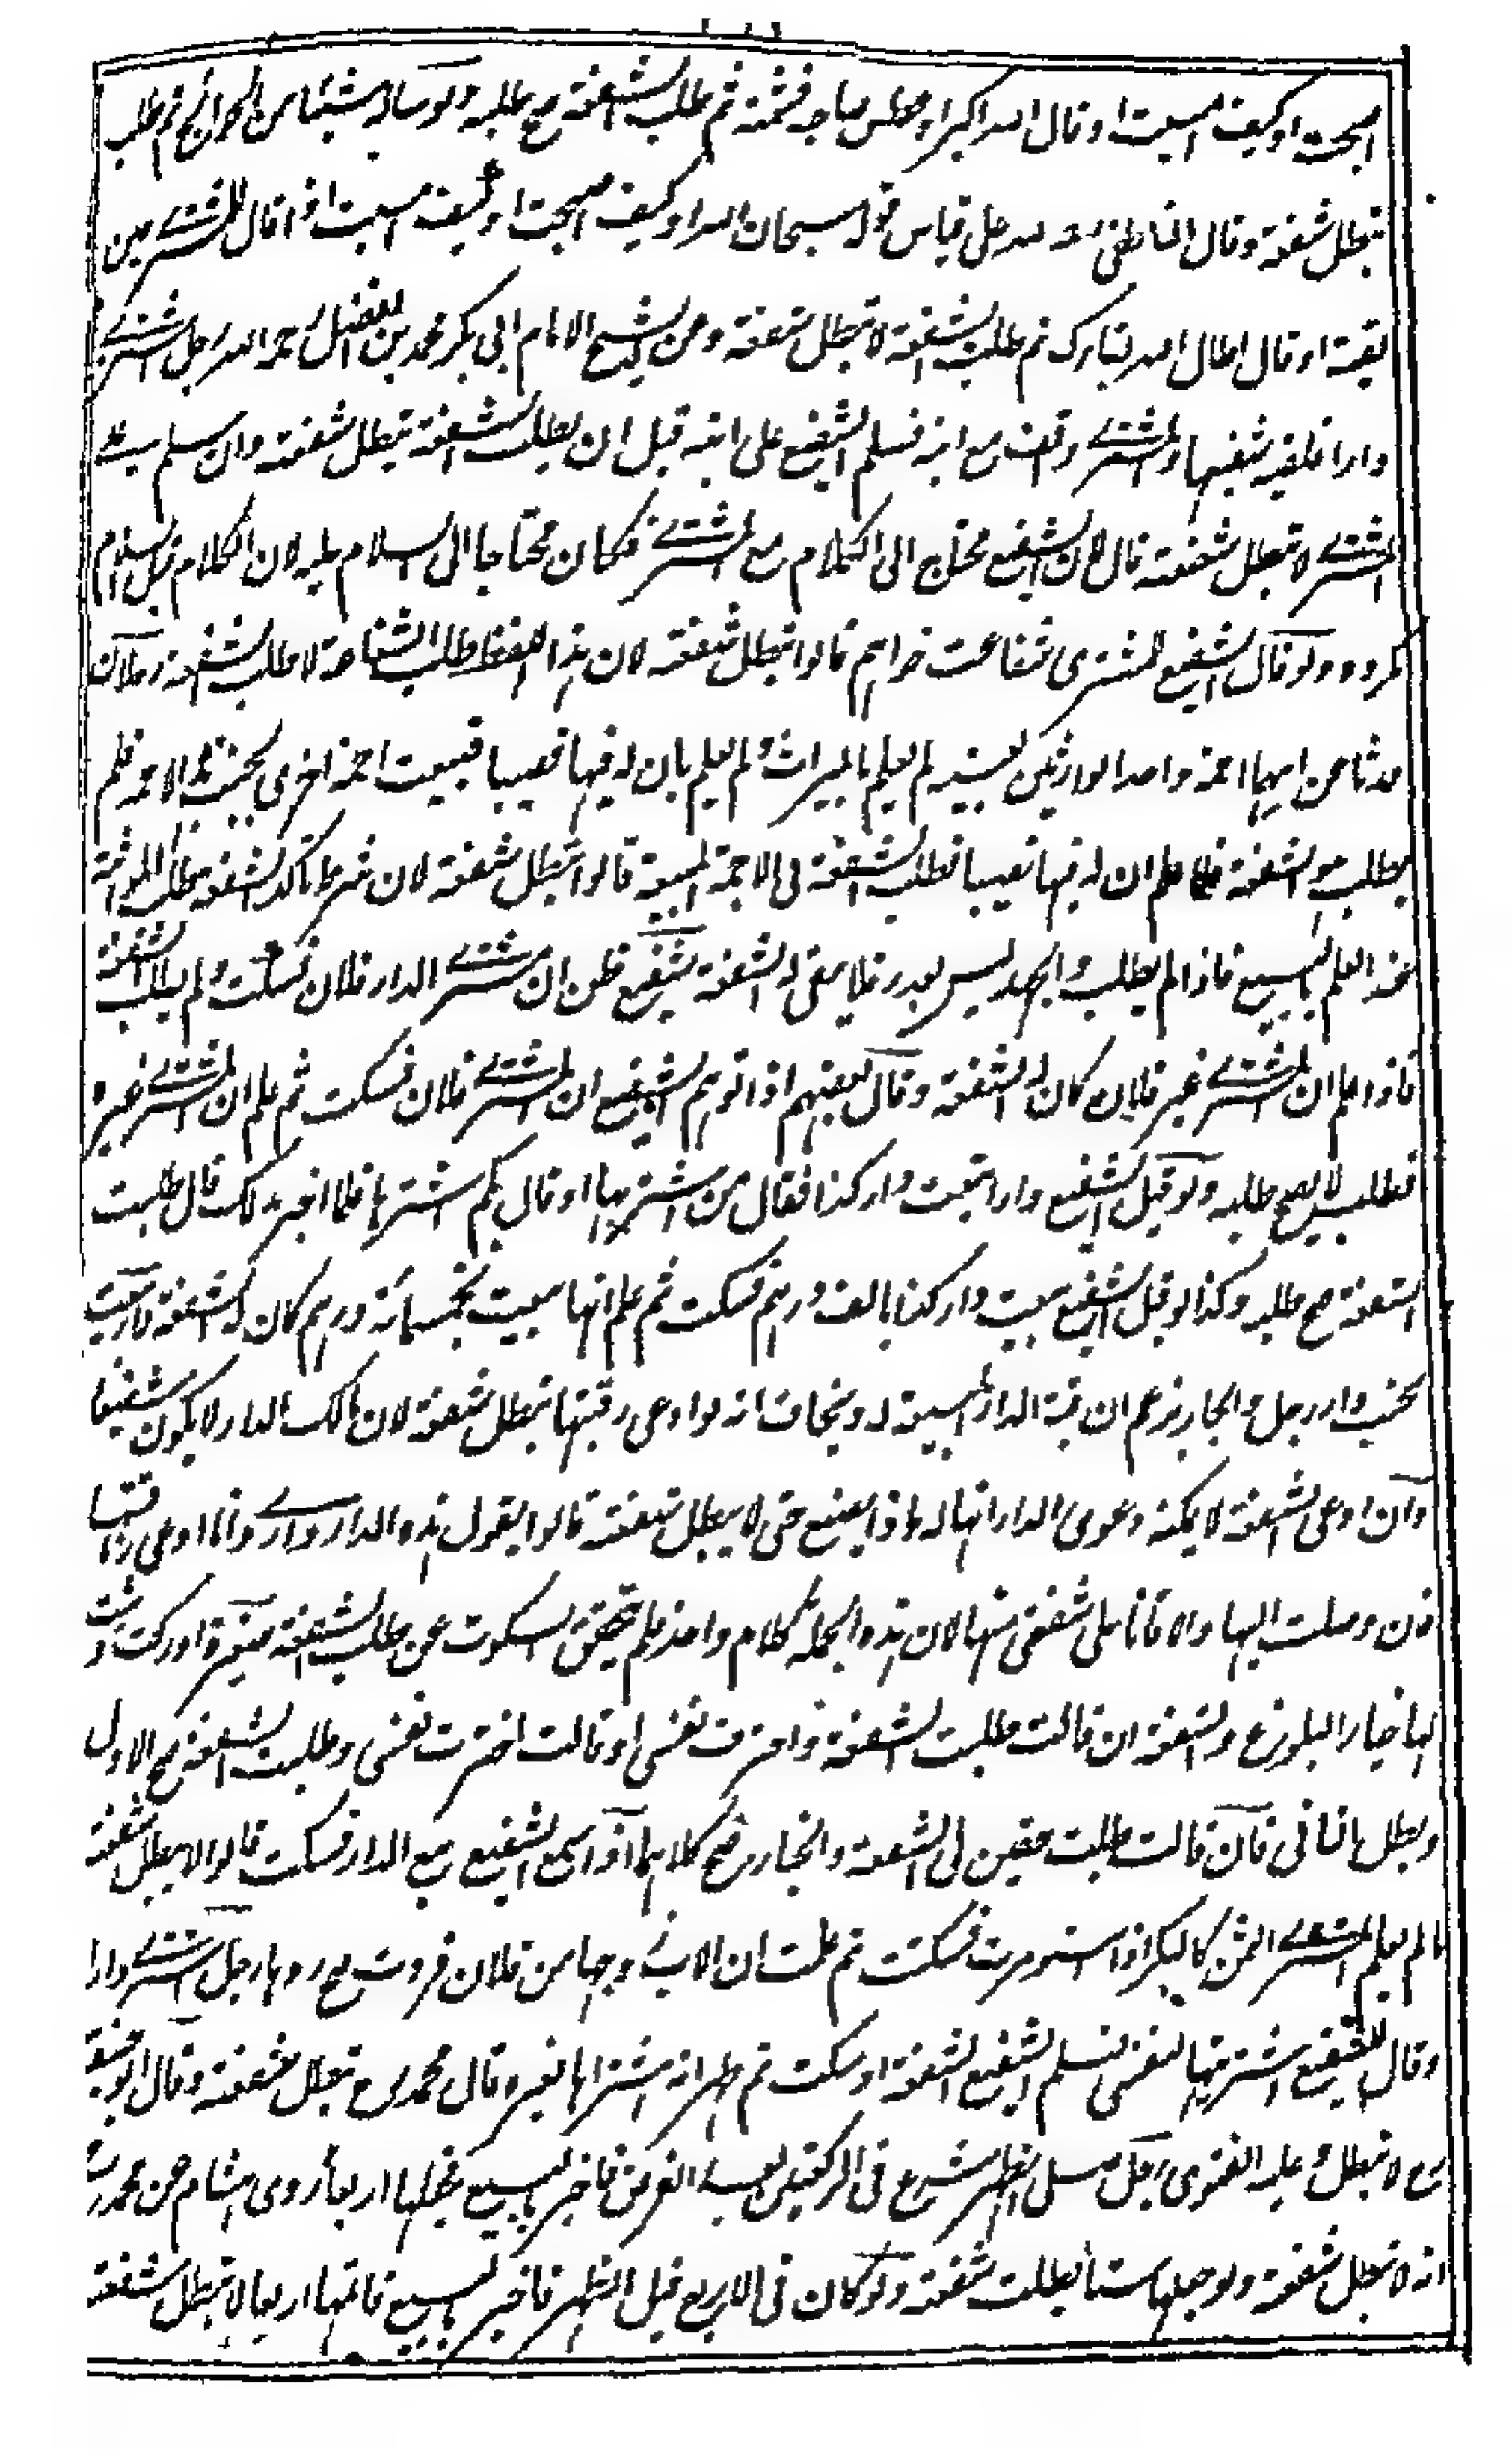 اصبحت او كيف امسيت او قال الله اكبر او عطس صاحبه فشمته ثم طلب الشفعة صح طلبه ولو ساله شيئا من الحوائج ثم طلب
تبطل شفعته وقال الناطفي رحمه الله على قياس قوله سبحان الله او كيف اصبحت او كيف امسيت اذا قال للمشترى حين
لقيه او قال اطال الله بقاءك ثم طلب الشفعة لا تبطل شفعته وعن الشيخ الامام ابى بكر محمد بن الفضل رحمه الله رجل اشترى
دارا فلقيه شفيعها والمشترى واقف مع ابنه فسلم الشفيع على ابنه قبل ان يطلب الشفعة تبطل شفعته وان سلم على
المشترى لا تبطل شفعته قال لان الشفيع محتاج الى الكلام مع المشترى فكان محتاجا الى السلام عليه لان الكلام قبل السلام
مكروه ولو قال الشفيع للمشترى شفاعت خواهم قالوا تبطل شفعته لان هذا اللفظ طلب الشفاعة لا طلب الشفعة رجلان
ورثا من ابيهما اجمة واحد الوارثين بعينه لم يعلم بالميراث ولم يعلم بان له فيها نصيبا فبيعت اجمة اخرى بجنب تلك الاجمة فلم
يطلب هو الشفعة فلما علم ان له فيها نصيبا فطلب الشفعة فى الاجمة المبيعة قالوا تبطل شفعته لان شرط تاكد الشفعة طلب المواثبة
عند العلم بالبيع فاذا لم يطلب والجهل ليس بعذر فلا يبقى له الشفعة شفيع ظن ان مشترى الدار فلان فسكت ولم يطلب الشفعة
فاذا علم ان المشترى غير فلان كان له الشفعة وقال بعضهم اذا توهم الشفيع ان المشترى فلان فسكت ثم علم ان المشترى غيره
فطلب لا يصح طلبه ولو قيل للشفيع دارا بيعت دار كذا فقال من اشتريها او قال بكم اشتريها فلما اخبر بذلك قال طلبت
الشفعة صح طلبه وكذا لو قيل للشفيع بيعت دار كذا بالف درهم فسكت ثم علم انها بيعت بخمسمائة درهم كان له الشفعة دار بيعت
بجنب دار رجل والجار يزعم ان رقبة الدار المبيعة له ويخاف انه لو ادعى رقبتها تبطل شفعته لان مالك الدار لا يكون شفيعا
وان ادعى الشفعة لا يمكنه دعوى الدار انها له ماذا يصنع حتى لا يبطل شفعته قالوا يقول هذه الدار دارى وانا ادعى رقبتها
فان وصلت اليها والا فانا على شفعتى منها لان هذه الجملة كلام واحد فلم يتحقق السكوت عن طلب الشفعة صغيرة ادركت وثبت
لها خيار البلوغ والشفعة ان قالت طلبت الشفعة واخترت نفسى او قالت اخترت نفسى وطلبت الشفعة صح الاول
وبطل الثانى فان قالت طلبت حقين لى الشفعة والخيار صح كلاهما اذا سمع الشفيع بيع الدار فسكت قالوا لا يبطل شفعته
ما لم يعلم المشترى والثمن كالبكر اذا استومرت فسكتت ثم علمت ان الاب زوجها من فلان فردت صح ردها رجل اشترى دارا
وقال للشفيع اشتريتها لنفسى فسلم الشفيع الشفعة او سكت ثم ظهر انه اشتراها لغيره قال محمد رح تبطل شفعته وقال ابو حنيفة
رح لا تبطل وعليه الفتوى رجل صلى الظهر شرع فى الركعتين بعد الفرض فاخبر بالبيع فجعلها اربعا روى هشام عن محمد رح
انه لا تبطل شفعته ولو جعلها ستا بطلت شفعته ولو كان فى الاربع قبل الظهر فاخبر بالبيع فاتمها اربعا لا تبطل شفعته